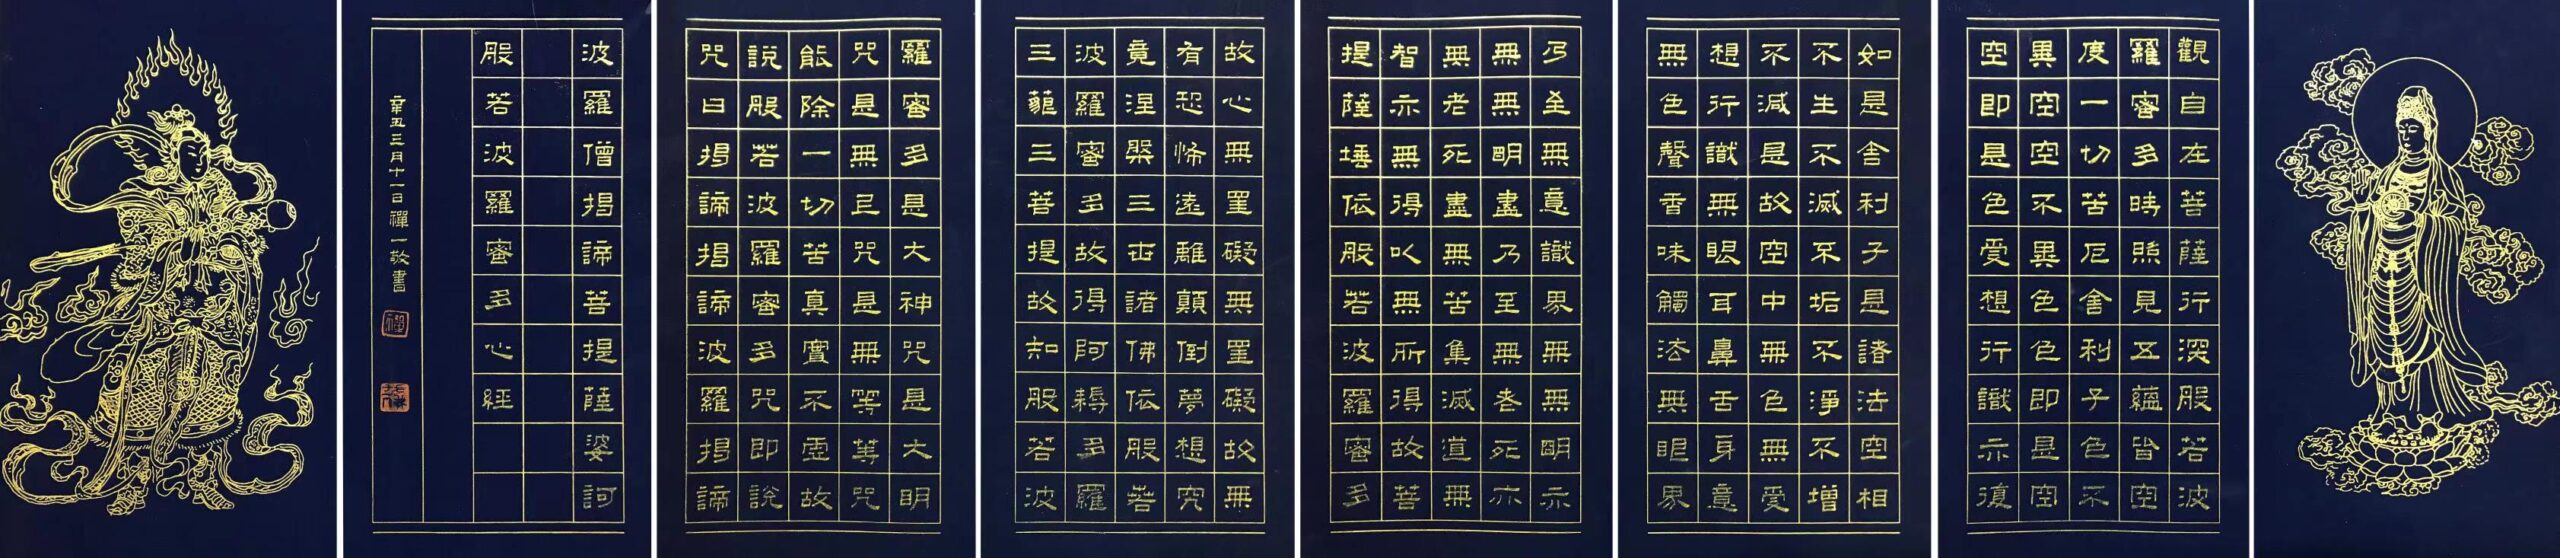 觀自在菩薩行深般若波
羅蜜多時照見五蘊皆空
度一切苦厄舍利子色不
異空空不異色色即是空
空即是色受想行識亦復
如是舍利子是諸法空相
不生不滅不垢不淨不增
不減是故空中無色無受
想行識無眼耳鼻舌身意
無色聲香味觸法無眼界
乃至無意識界無無明亦
無無明盡乃至無老死亦
無老死盡無苦集滅道無
智亦無得以無所得故菩
提薩埵依般若波羅蜜多
故心無罣礙無罣礙故無
有恐怖遠離顛倒夢想究
竟涅槃三世諸佛依般若
波羅蜜多故得阿耨多羅
三藐三菩提故知般若波
羅蜜多是大神咒是大明
咒是無上咒是無等等咒
能除一切苦真實不虛故
說般若波羅蜜多咒即說
咒曰揭諦揭諦波羅揭諦
波羅僧揭諦菩提薩婆訶
般若波羅蜜多心經
辛丑三月十一日禪一敬書